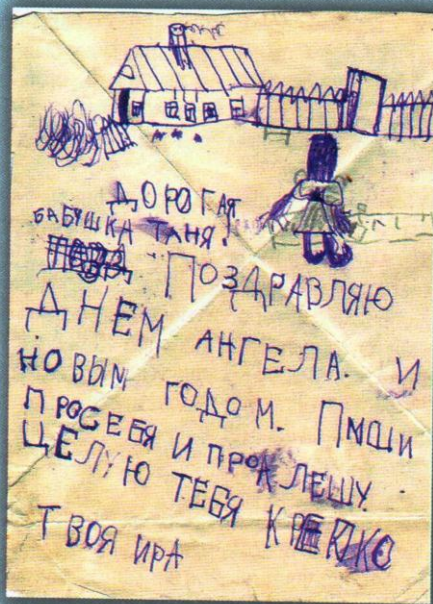 ДОРОГАЯ
БАБУШКА ТАНЯ!
ПОЗДРАВЛЯЮ
ДНЕМ АНГЕЛА. И
НОВЫМ ГОДОМ. ПИШИ
ПРОСЕБЯ И ПРО АЛЕШУ.
ЦЕЛУЮ ТЕБЯ КРЕПКО
ТВОЯ ИРА